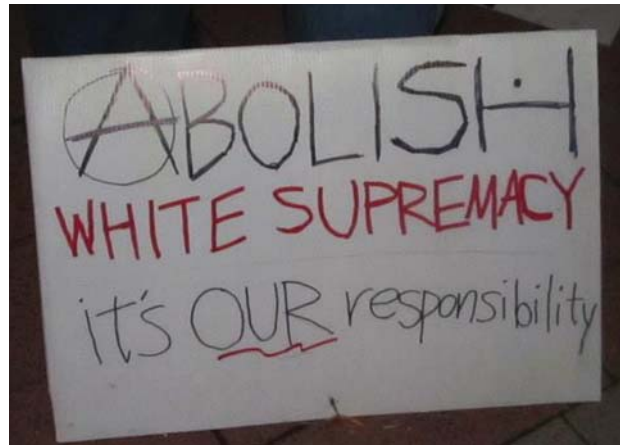 ABOLISH
WHITE SUPREMACY
it's OUR responsibility